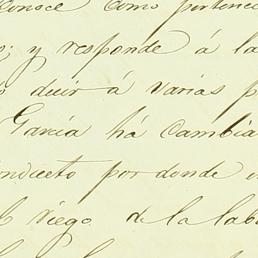 conoce como pertenec
o; y responde á la
o decir á varias p
García há cambia
ndiceto por donde e
l riego de la lab